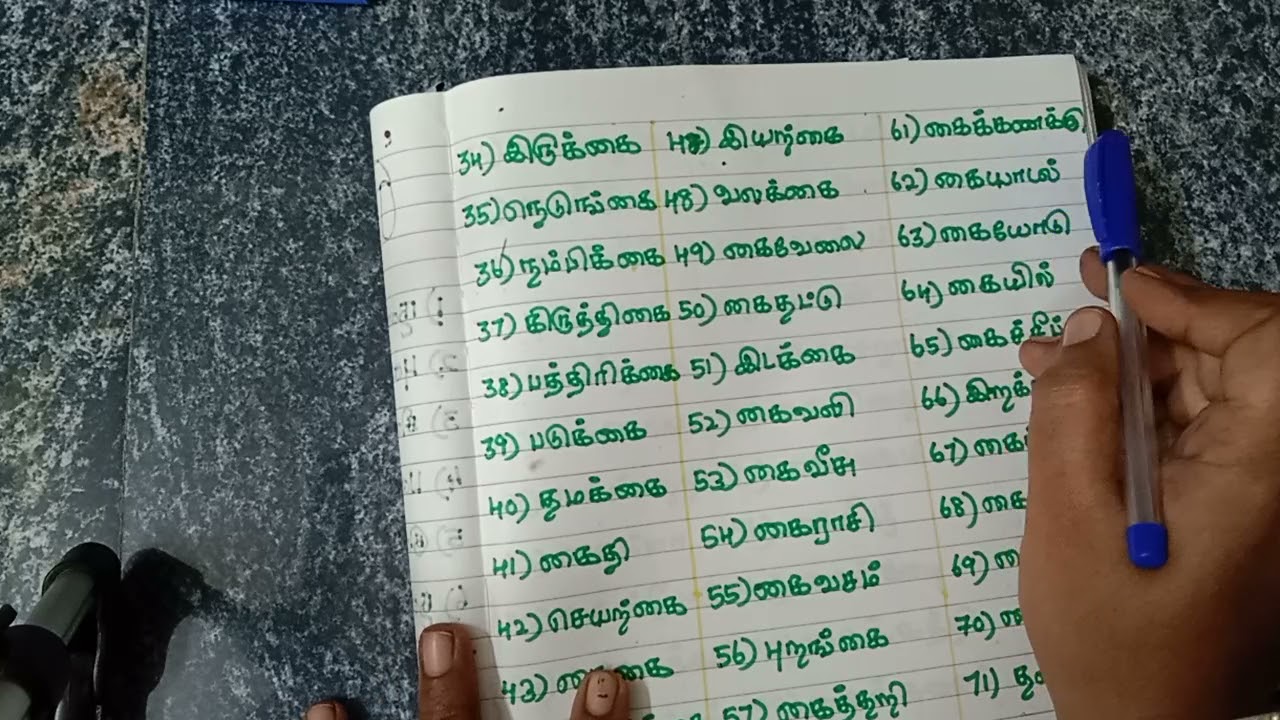 34) இருக்கை
35) நெடுங்கை
36) நம்பிக்கை
37) கிருத்திகை
38) பத்திரிக்கை
39) படுக்கை
40) தமக்கை
41) கைதி
42) செயற்கை
43)
47) இயற்கை
48) வலக்கை
49) கைவேலை
50) கைதட்டு
51) இடக்கை
52) கைவலி
53) கைவீசு
54) கைராசி
55) கைவசம்
56) புறங்கை
57) கைத்தறி
61) கைக்கணக்கு
62) கையாடல்
63) கையோடு
64) கையில்
65)
66)
67)
68)
69)
70)
71)